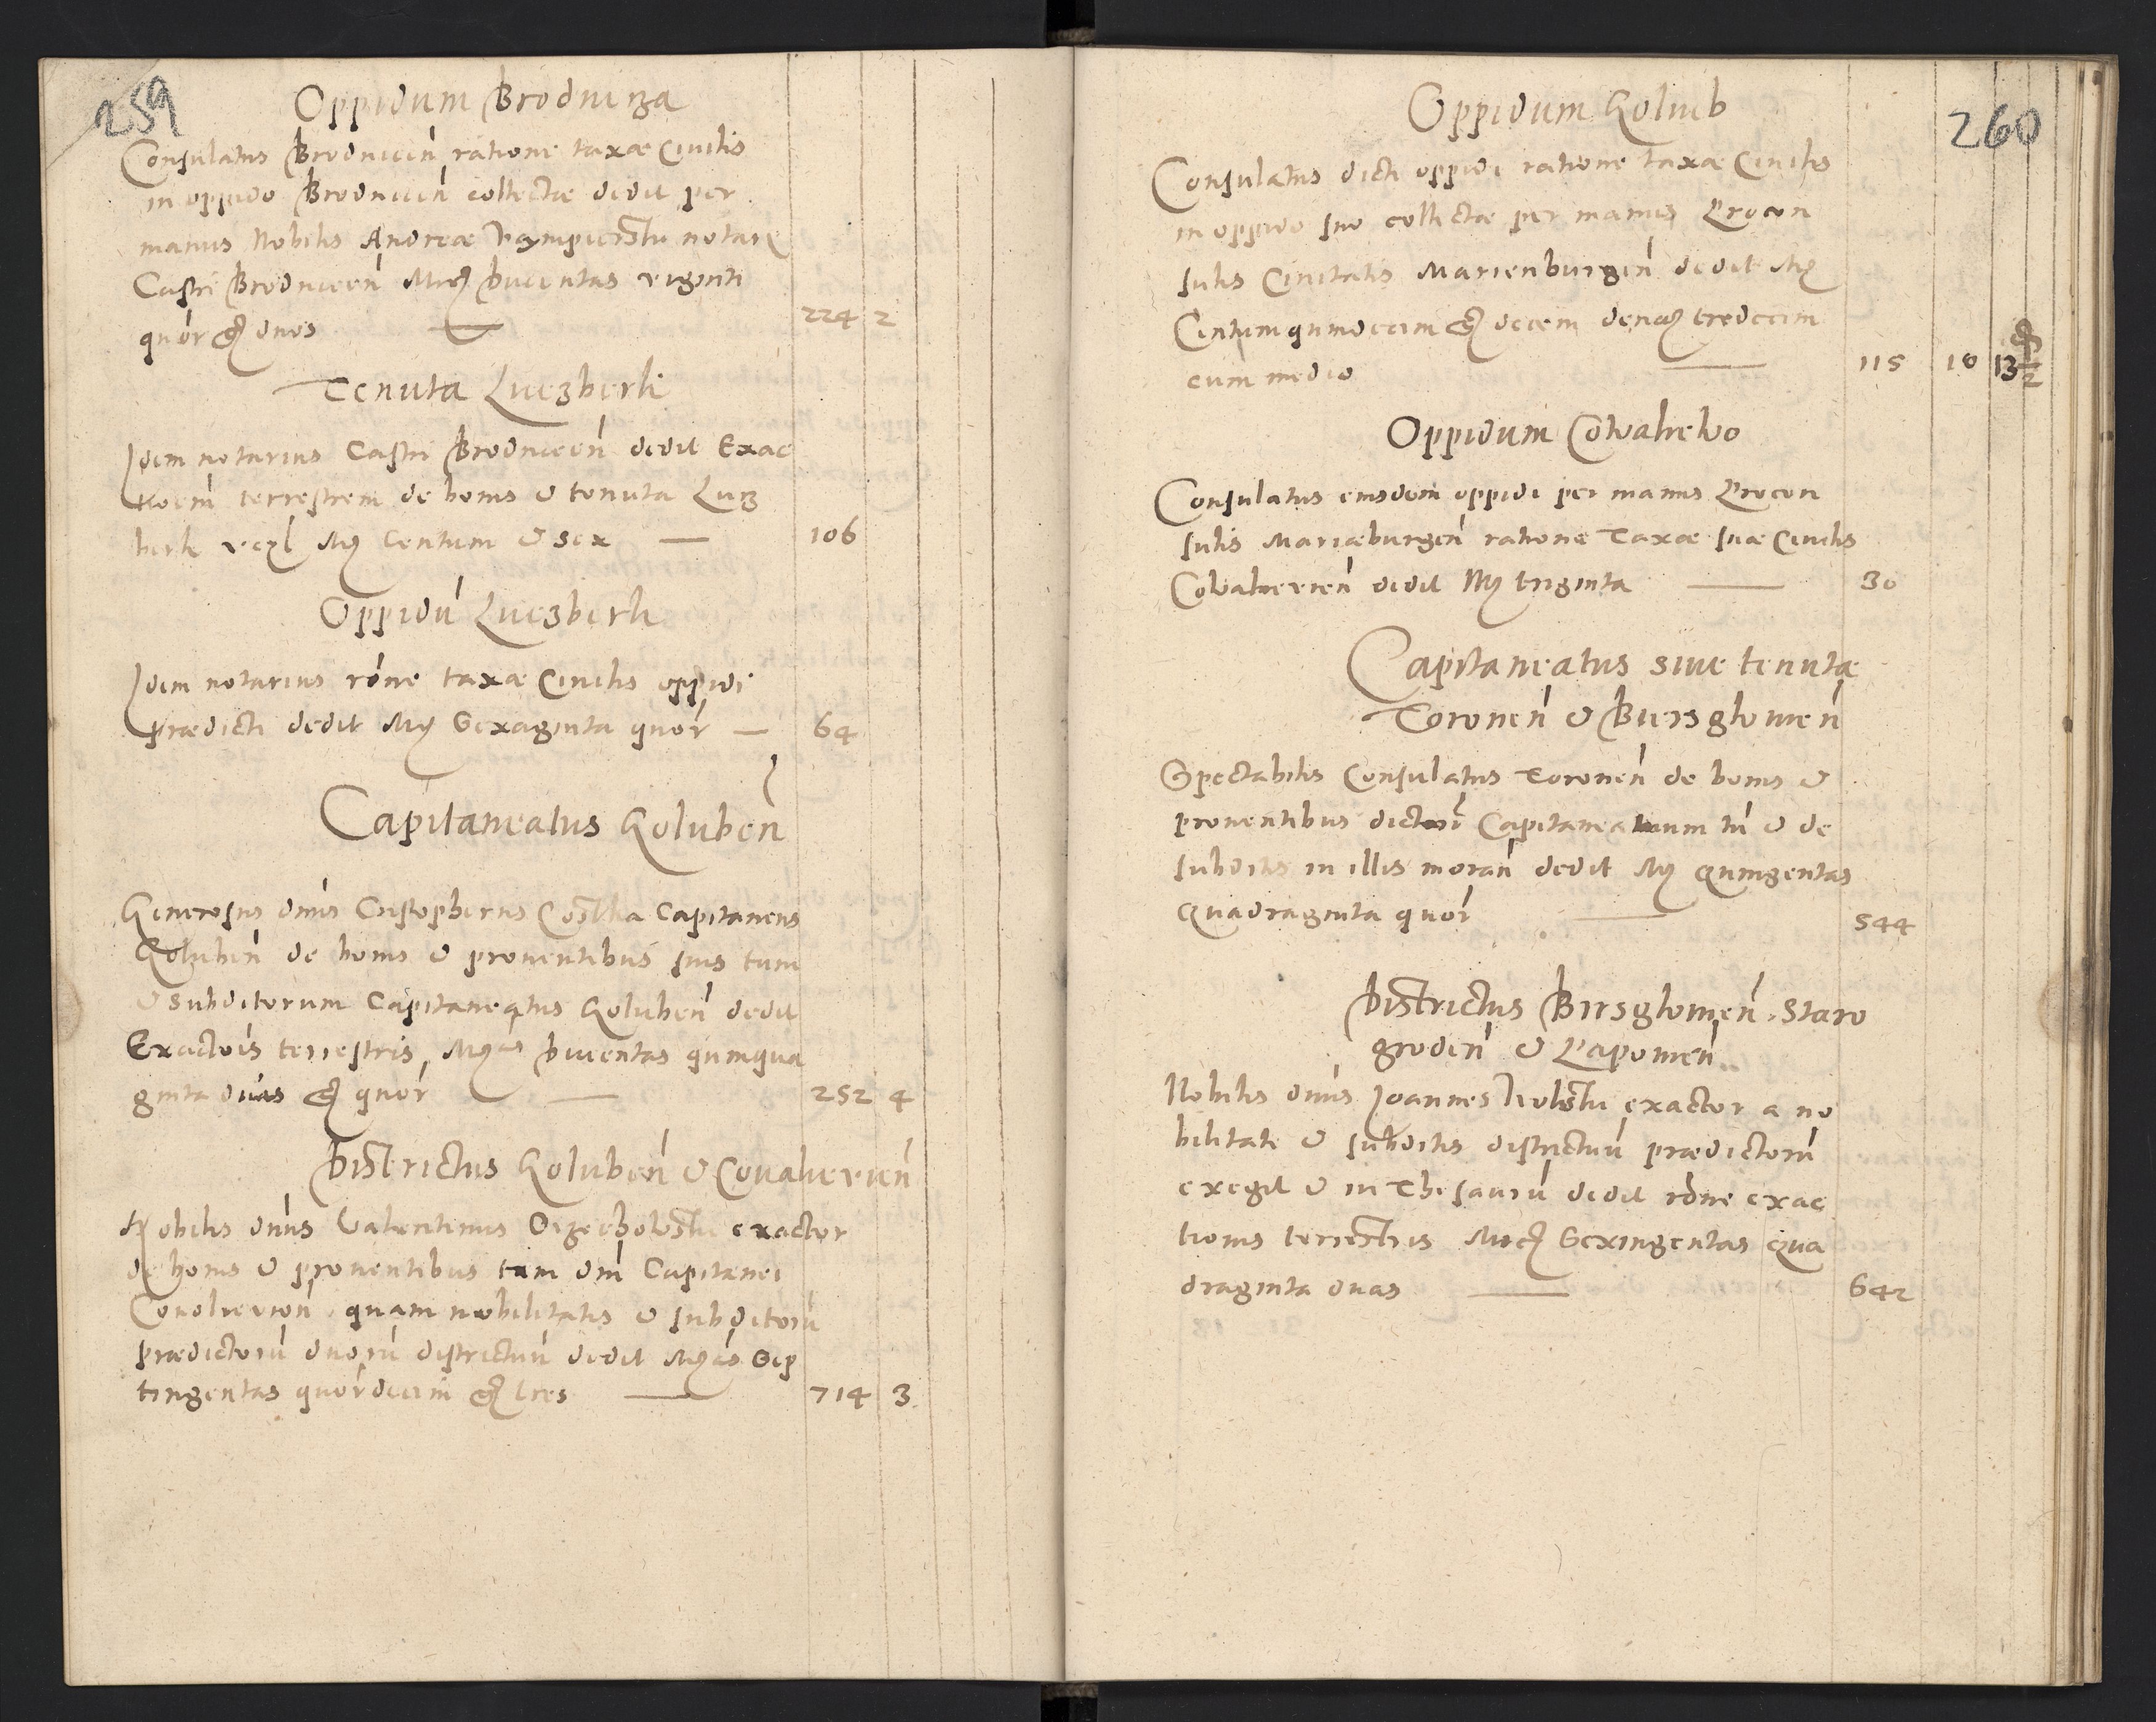 259
Oppidum Brodnicza
Consulatus Brodnicen̄ ratione taxæ Civilis
in oppido Brodnicen̄ collectæ dedit per
manus Nobilis Andreæ notarÿ
Castri Brodnicen̄ Mrc̄ Ducentas viginti
quōr gr̄ duos — 224 2
Tenuta Luczberk
Idem notarius Castri Brodnicen̄ dedit Exac
tioēm terrestrem de bonis & tenuta Lucz
berk Mr̄ Centum & sex — 106
Oppidū Luczberk
Idem notarius rōne taxæ Civilis oppidi
prædicti dedit Mr̄ Sexaginta quōr — 64
Capitaneatus Golubēn
Generosus dn̄us Cristopherus Costka Capitaneus
Golubēn de bonis & proventibus suis tum
& subditorum Capitaneatus Golubēn dedit
Exactōis terrestris, Mr̄cas Ducentas quinqua
ginta duas gr̄ quōr — 252 4
Districtus Golubēn & Covalieviēn
Nobilis dn̄us Valentinus Orzechowski exactor
de bonis & proventibus tam dn̄i Capitanei
Covalieviēn quam nobilitatis & subditorū
prædictorū duorū districtuū dedit Mr̄cas Sep
tingentas quōrdecim gr̄ tres — 714 3
260
Oppidum Goliub
Consulatus dicti oppidi ratione taxæ Civilis
in oppido suo collectæ per manus Procon
sulis Civitatis Marienburgēn dedit Mr̄
Centum quindecim gr̄ decem denar̄ tredecim
cum medio — 115 10 13 ½
Oppidum Cowalewo
Consulatus eiusdem oppidi per manus Procon
sulis Mariæburgēn ratione Taxæ suæ Civilis
Cowalieviēn dedit Mr̄ triginta — 30
Capitaneatus sive tenutæ
Toronēn & Biersglowēn
Spectabilis Consulatus Toronēn de bonis &
proventibus dictorū Capitaneatuum tū & de
subditis in illis morān dedit Mr̄ quingentas
Quadraginta quōr — 544
Districtus Birsglowēn. Staro
grodēn & Papowēn
Nobilis dn̄us Joannes exactor a no
bilitate & subditis districtuū prædictorū
exegit & in Thesaurū dedit rōne exac
tionis terrestris Mrc̄ Sexingentas Qua
draginta duas — 642